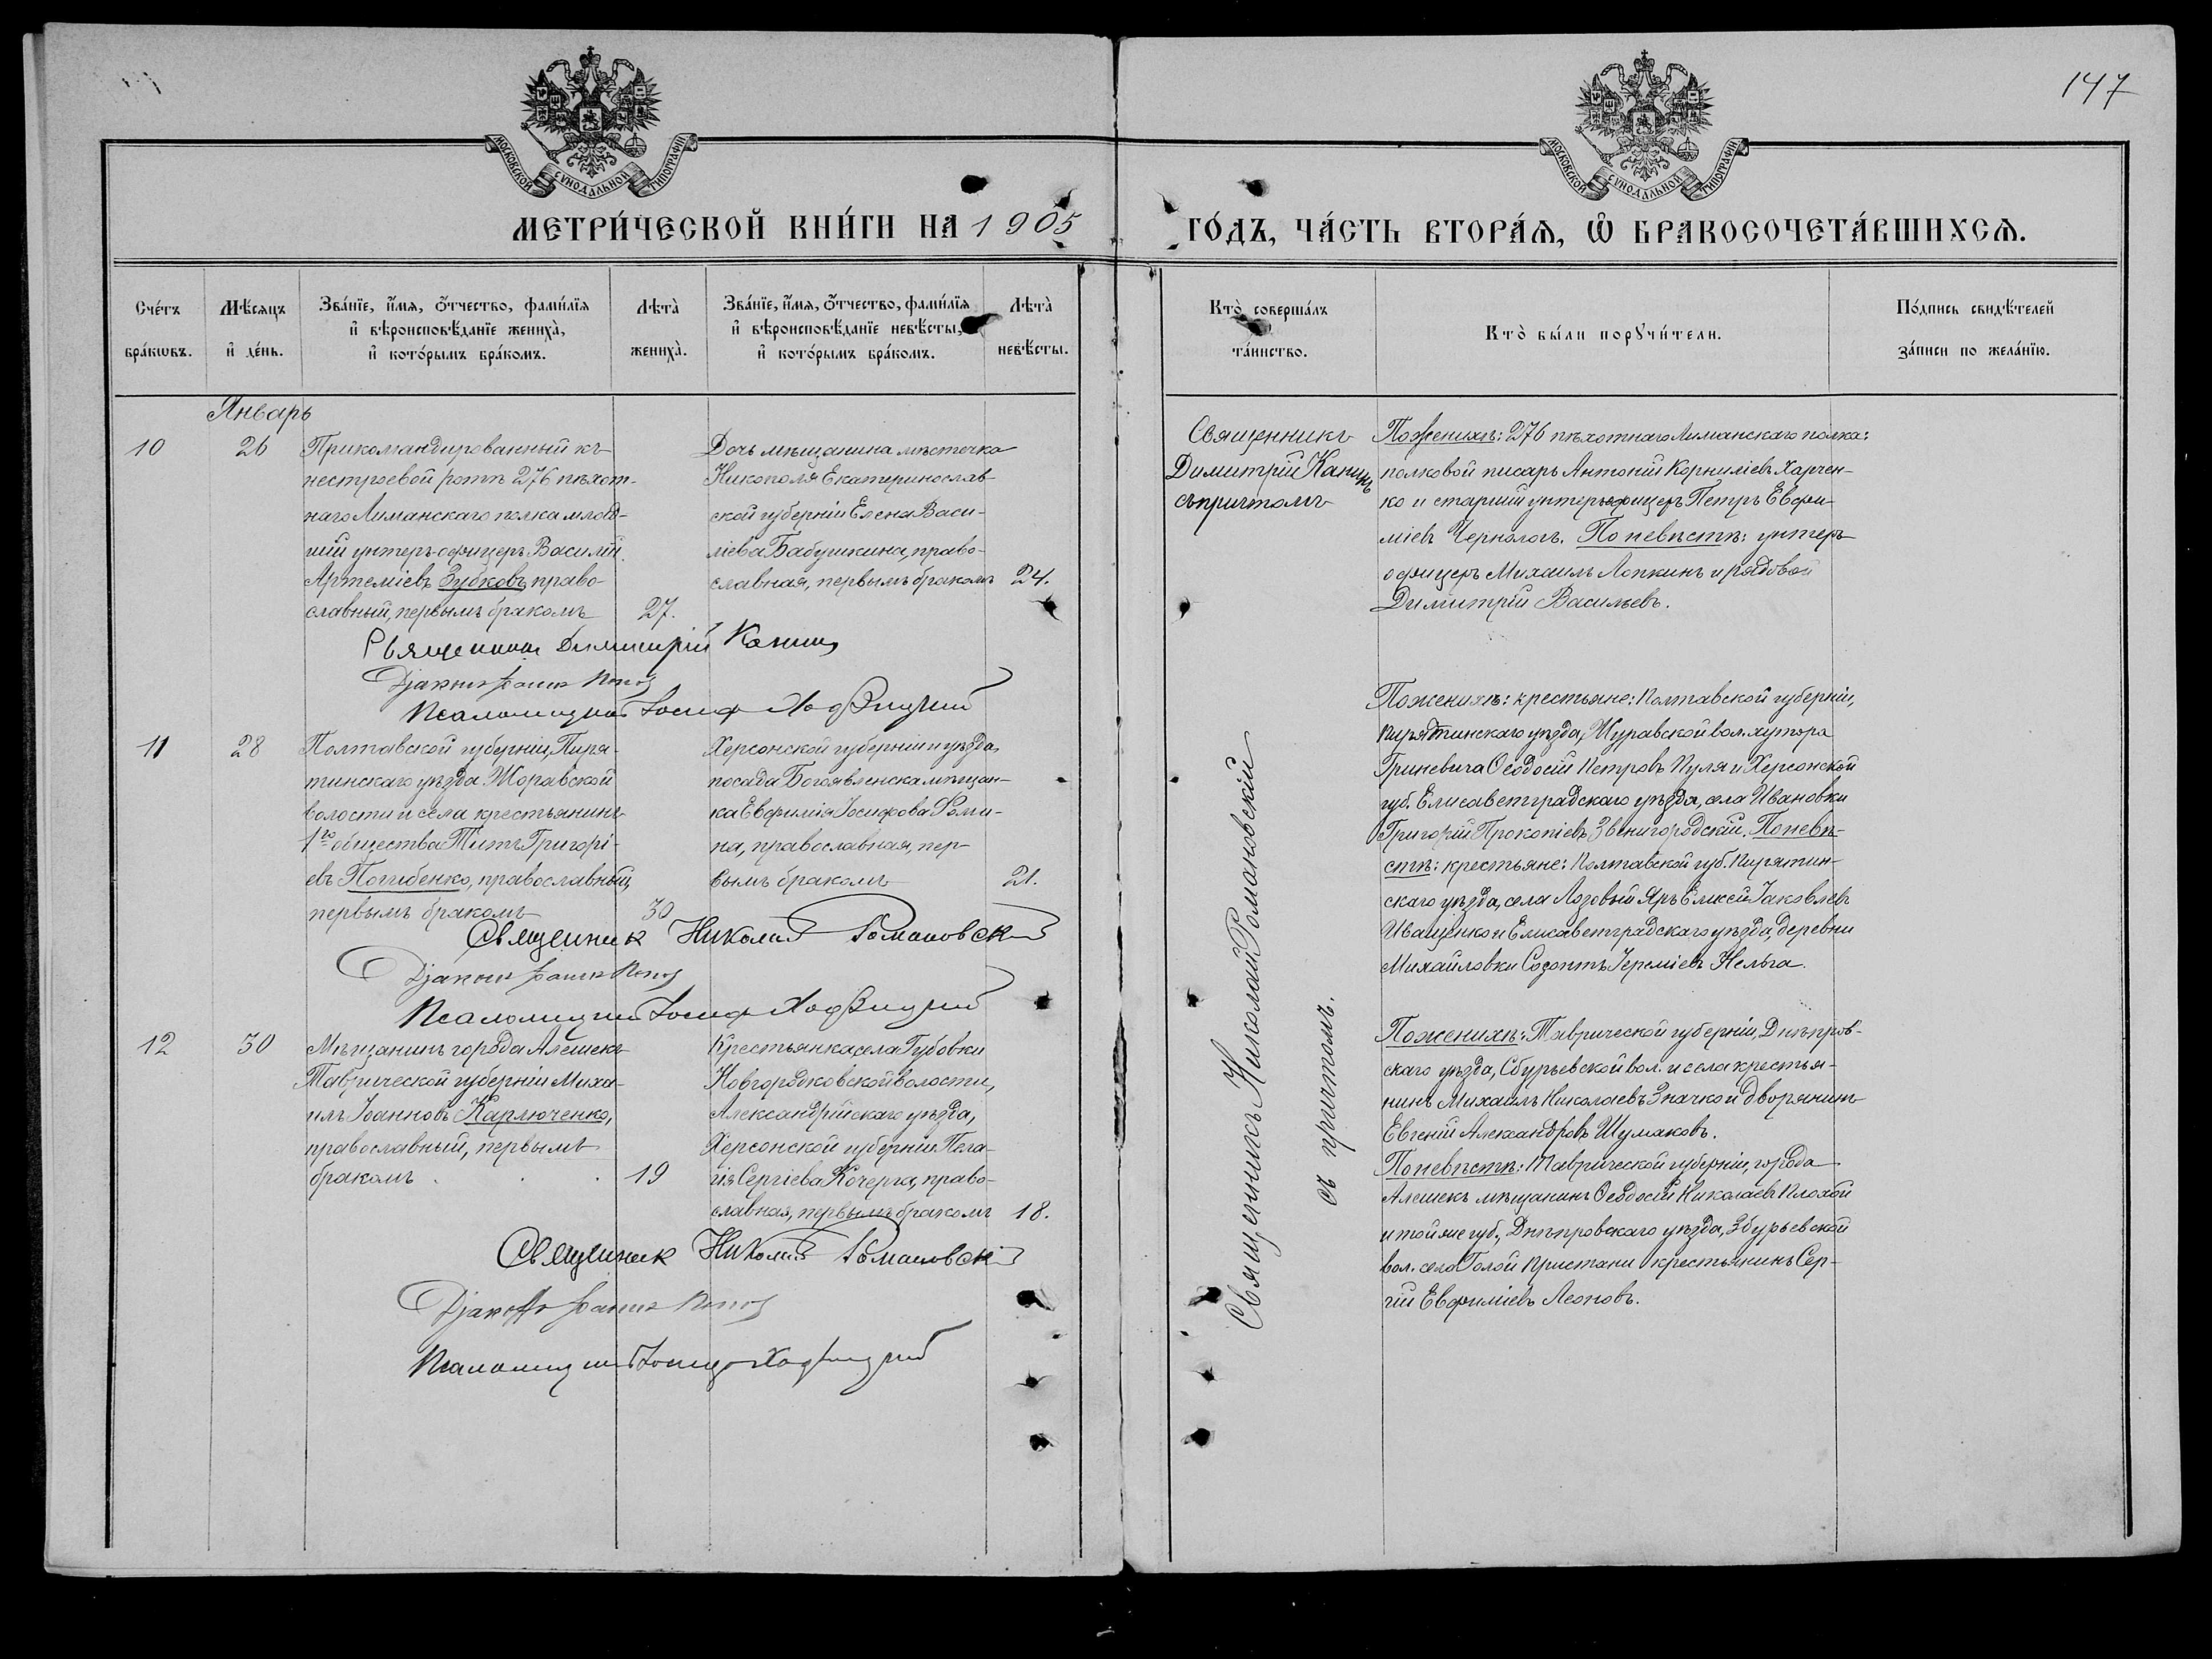 147
МОСКОВСКОЙ СУНОДАЛЬНОЙ ТИПОГРАФІИ
МОСКОВСКОЙ СУНОДАЛЬНОЙ ТИПОГРАФІИ
МЕТРИ́ЧЕСКОЙ КНИ́ГИ НА 1905
ГО́ДЪ, ЧА́СТЬ ВТОРА́Ѧ, Ѡ҆ БРАКОСОЧЕТА́ВШИХСѦ.
Сче́тъ
бра́кѡвъ.
Мѣ́сѧцъ
и҆ де́нь.
Зва́нїе, и҆́мѧ, ѻ҆́тчество, фами́лїѧ
и҆ вѣроисповѣ́данїе жениха̀,
и҆ кото́рымъ бра́комъ.
Лѣта̀
жениха̀.
Зва́нїе, и҆́мѧ, ѻ҆́тчество, фами́лїѧ
и҆ вѣроисповѣ́данїе невѣ́сты,
и҆ кото́рымъ бра́комъ.
Лѣта̀
невѣ́сты.
Кто̀ соверша́лъ
та́инство.
Кто̀ бы́ли порꙋчи́тели.
По́дпись свидѣ́телей
за́писи по жела́нїю.
Январь
10
26
Прикомандированный къ
нестроевой ротѣ 276 пѣхот-
наго Лиманскаго полка млад-
шій унтеръ-офицеръ Василій
Артеміевъ Зубковъ, право-
славный, первымъ бракомъ
27.
Дочь мѣщанина мѣстечка
Никополя Екатеринослав-
ской губерніи Елена Васи-
ліева Бабушкина, право-
славная, первымъ бракомъ
24.
Священникъ
Димитрій Канинъ
съ причтомъ
По женихѣ: 276 пѣхотнаго Лиманскаго полка:
полковой писарь Антоній Корниліевъ Харчен-
ко и старшій унтеръ-офицеръ Петръ Евфи-
міевъ Чернологъ. По невѣстѣ: унтеръ
офицеръ Михаилъ Лопкинъ и рядовой
Димитрій Васильевъ.
Священникъ Димитрій Канинъ
Діаконъ Іоаннъ
Псаломщикъ Іосифъ
11
28
Полтавской губерніи, Пиря-
тинскаго уѣзда Журавской
волости и села крестьянинъ
1го общества Титъ Григорі-
евъ Погибенко, православный,
первымъ бракомъ
30
Херсонской губерніи и уѣзда,
посада Богоявленска мѣщан-
ка Евфимія Іосифова Фоми-
на, православная, пер-
вымъ бракомъ
21.
Священникъ Николай Романовскій
съ причтомъ.
По женихѣ: крестьяне: Полтавской губерніи,
Пирятинскаго уѣзда, Журавской вол. хутора
Гриневича Ѳеодосій Петровъ Пуля и Херсонской
губ. Елисаветградскаго уѣзда, села Ивановки
Григорій Прокопіевъ Звенигородскій. По невѣ-
стѣ: крестьяне: Полтавской губ. Пирятин-
скаго уѣзда, села Лозовый Яръ Елисей Іаковлевъ
Иващенко и Елисаветградскаго уѣзда, деревни
Михайловки Созонтъ Іереміевъ Нельга.
Священник Николай Романовскій
Діаконъ Іоаннъ
Псаломщикъ Іосифъ
12
30
Мѣщанинъ города Алешекъ
Таврической губерніи Миха-
илъ Іоанновъ Карлюченко,
православный, первымъ
бракомъ
19
Крестьянка села Губовки
Новгородковской волости,
Александрійскаго уѣзда,
Херсонской губерніи Пела-
гія Сергіева Кочерга, право-
славная, первымъ бракомъ
18.
По женихѣ: Таврической губерніи, Днѣпров-
скаго уѣзда, Сбурьевской вол. и села крестья-
нинъ Михаилъ Николаевъ Значко и дворянинъ
Евгеній Александровъ Шумаковъ.
По невѣстѣ: Таврической губерніи, города
Алешекъ мѣщанинъ Ѳеодосій Николаевъ Плохой
и той же губ., Днѣпровскаго уѣзда, Збурьевской
вол. села Голой Пристани крестьянинъ Сер-
гій Евфиміевъ Леоновъ.
Священник Николай Романовскій
Діаконъ Іоаннъ
Псаломщикъ Іосифъ